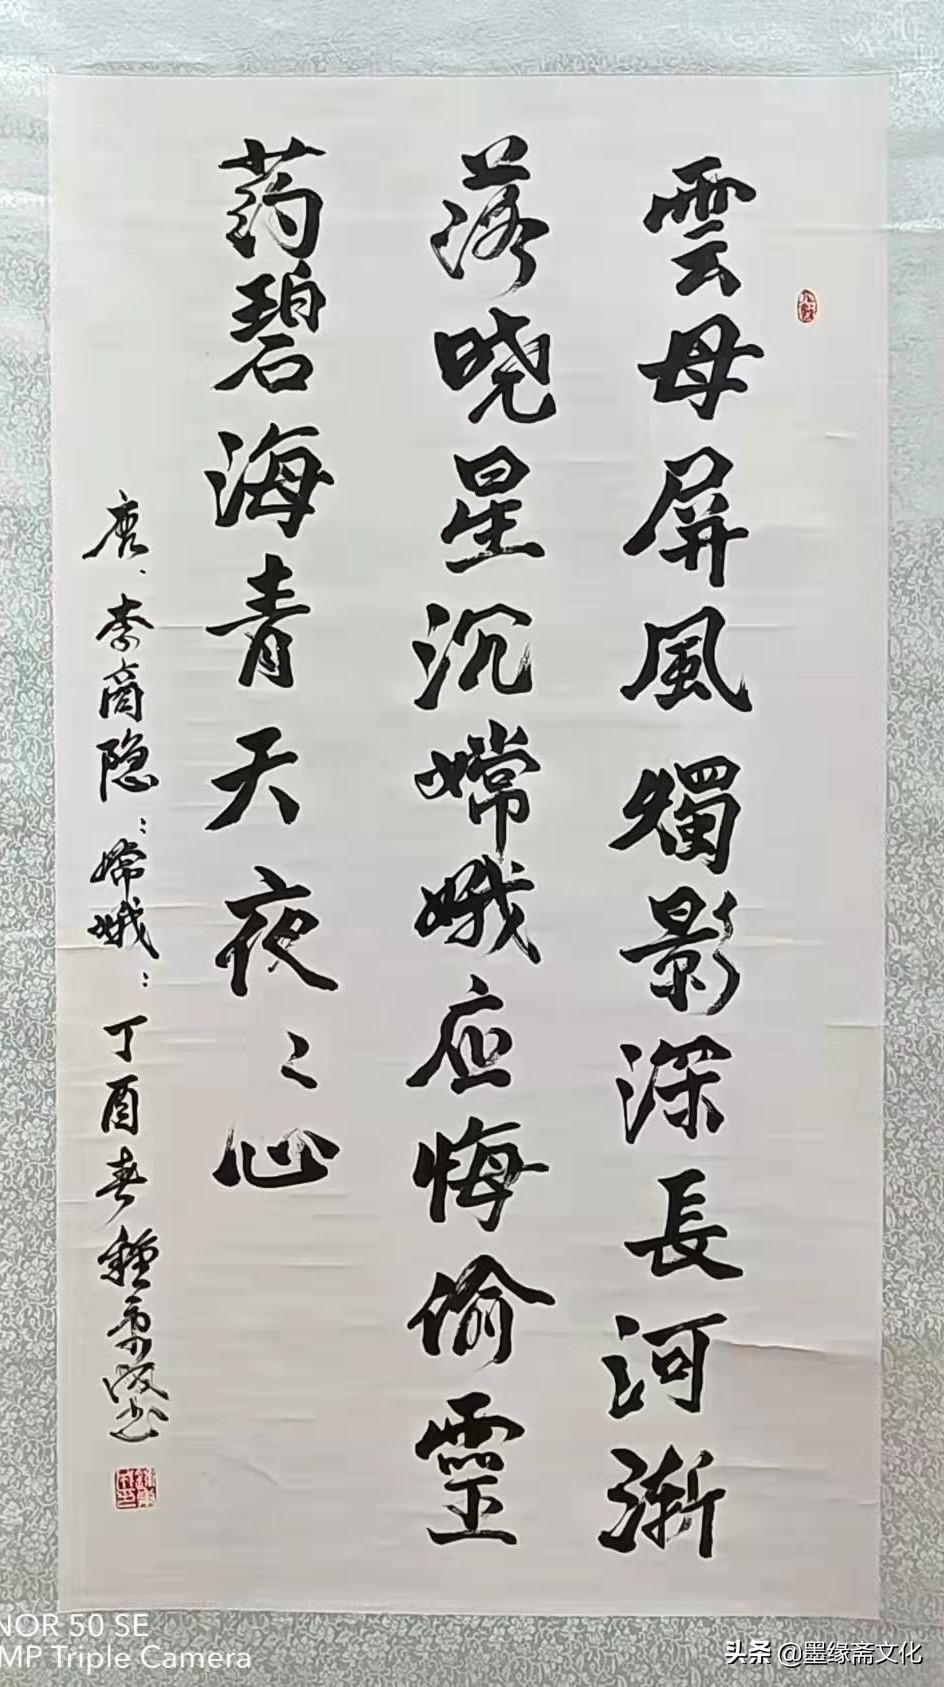 雲母屏風燭影深長河漸
落晓星沉嫦娥应悔偷靈
药碧海青天夜〻心
唐、李商隐：嫦娥：丁酉春
NOR 50 SE
MP Triple Camera
头条 @墨缘斋文化